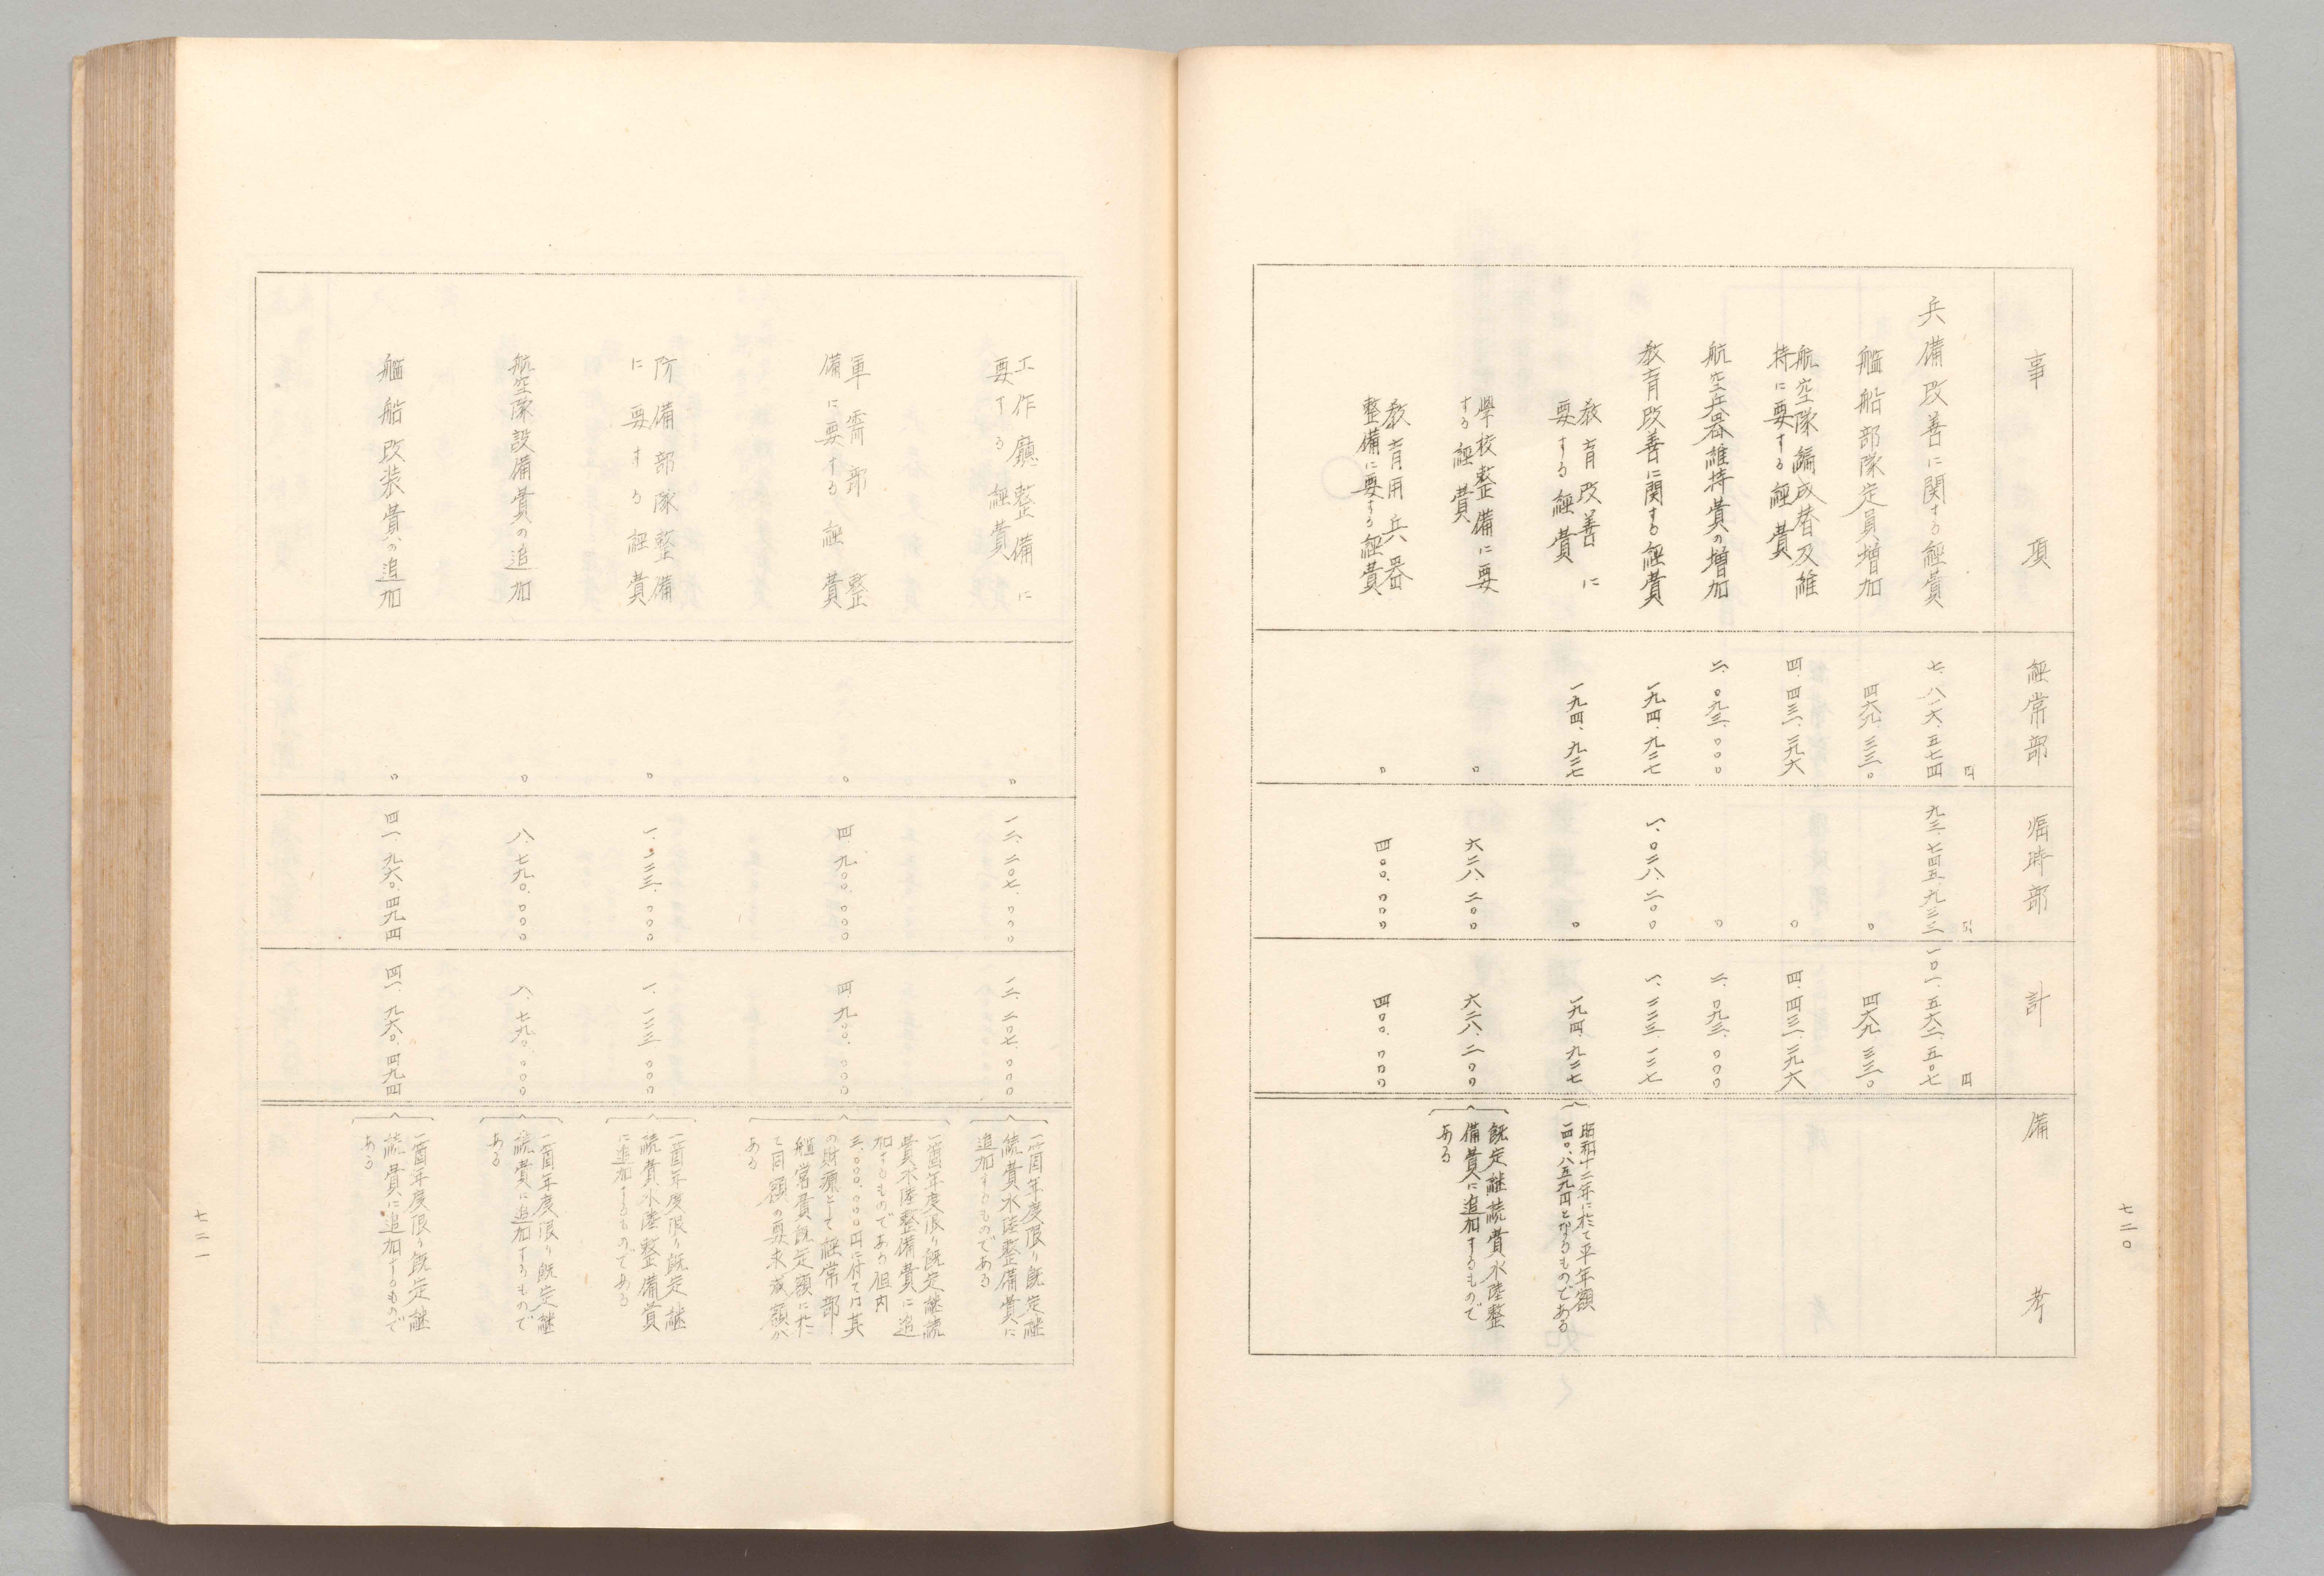 事項
経常部
臨時部
計
備考
兵備改善に関する経費
七、八一六、五七四円
九三、七四五、九三三円
一〇一、五六二、五〇七円
艦船部隊定員増加
四六九、三三〇
〇
四六九、三三〇
航空隊編成替及維
持に要する経費
四、四三一、二九六
〇
四、四三一、二九六
航空兵器維持費の増加
二、〇九三、〇〇〇
〇
二、〇九三、〇〇〇
教育改善に関する経費
一九四、九二七
一、〇二八、二〇〇
一、二二三、一二七
教育改善に
要する経費
一九四、九二七
〇
一九四、九二七
昭和十二年に於て平年額
二四〇、八五九円となるものである
學校整備に要
する経費
〇
六二八、二〇〇
六二八、二〇〇
既定継続費水陸整
備費に追加するもので
ある
教育用兵器
整備に要する経費
〇
四〇〇、〇〇〇
四〇〇、〇〇〇
七二〇
工作廳整備に
要する経費
〇
一二、二〇七、〇〇〇
一二、二〇七、〇〇〇
一箇年度限り既定継
続費水陸整備費に
追加するものである
軍需部整
備に要する経費
〇
四、九〇〇、〇〇〇
四、九〇〇、〇〇〇
一箇年度限り既定継続
費水陸整備費に追
加するものである但内
三、〇〇〇、〇〇〇円に付ては其
の財源として経常部
艦営費既定額に於
て同額の要求減額が
ある
防備部隊整備
に要する経費
〇
一、二三三、〇〇〇
一、二三三、〇〇〇
一箇年度限り既定継
続費水陸整備費
に追加するものである
航空隊設備費の追加
〇
八、七九〇、〇〇〇
八、七九〇、〇〇〇
一箇年度限り既定継
続費に追加するもので
ある
艦船改装費の追加
〇
四一、九六〇、四九四
四一、九六〇、四九四
一箇年度限り既定継
続費に追加するもので
ある
七二一